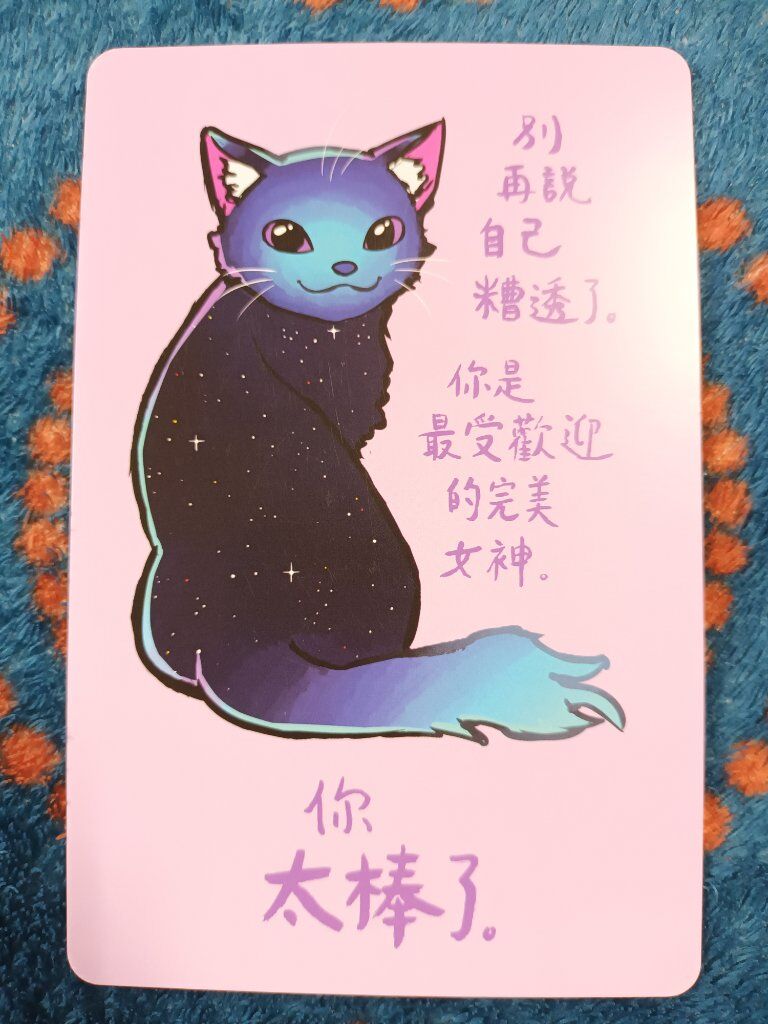 別
再說
自己
糟透了。
你是
最受歡迎
的完美
女神。
你
太棒了。